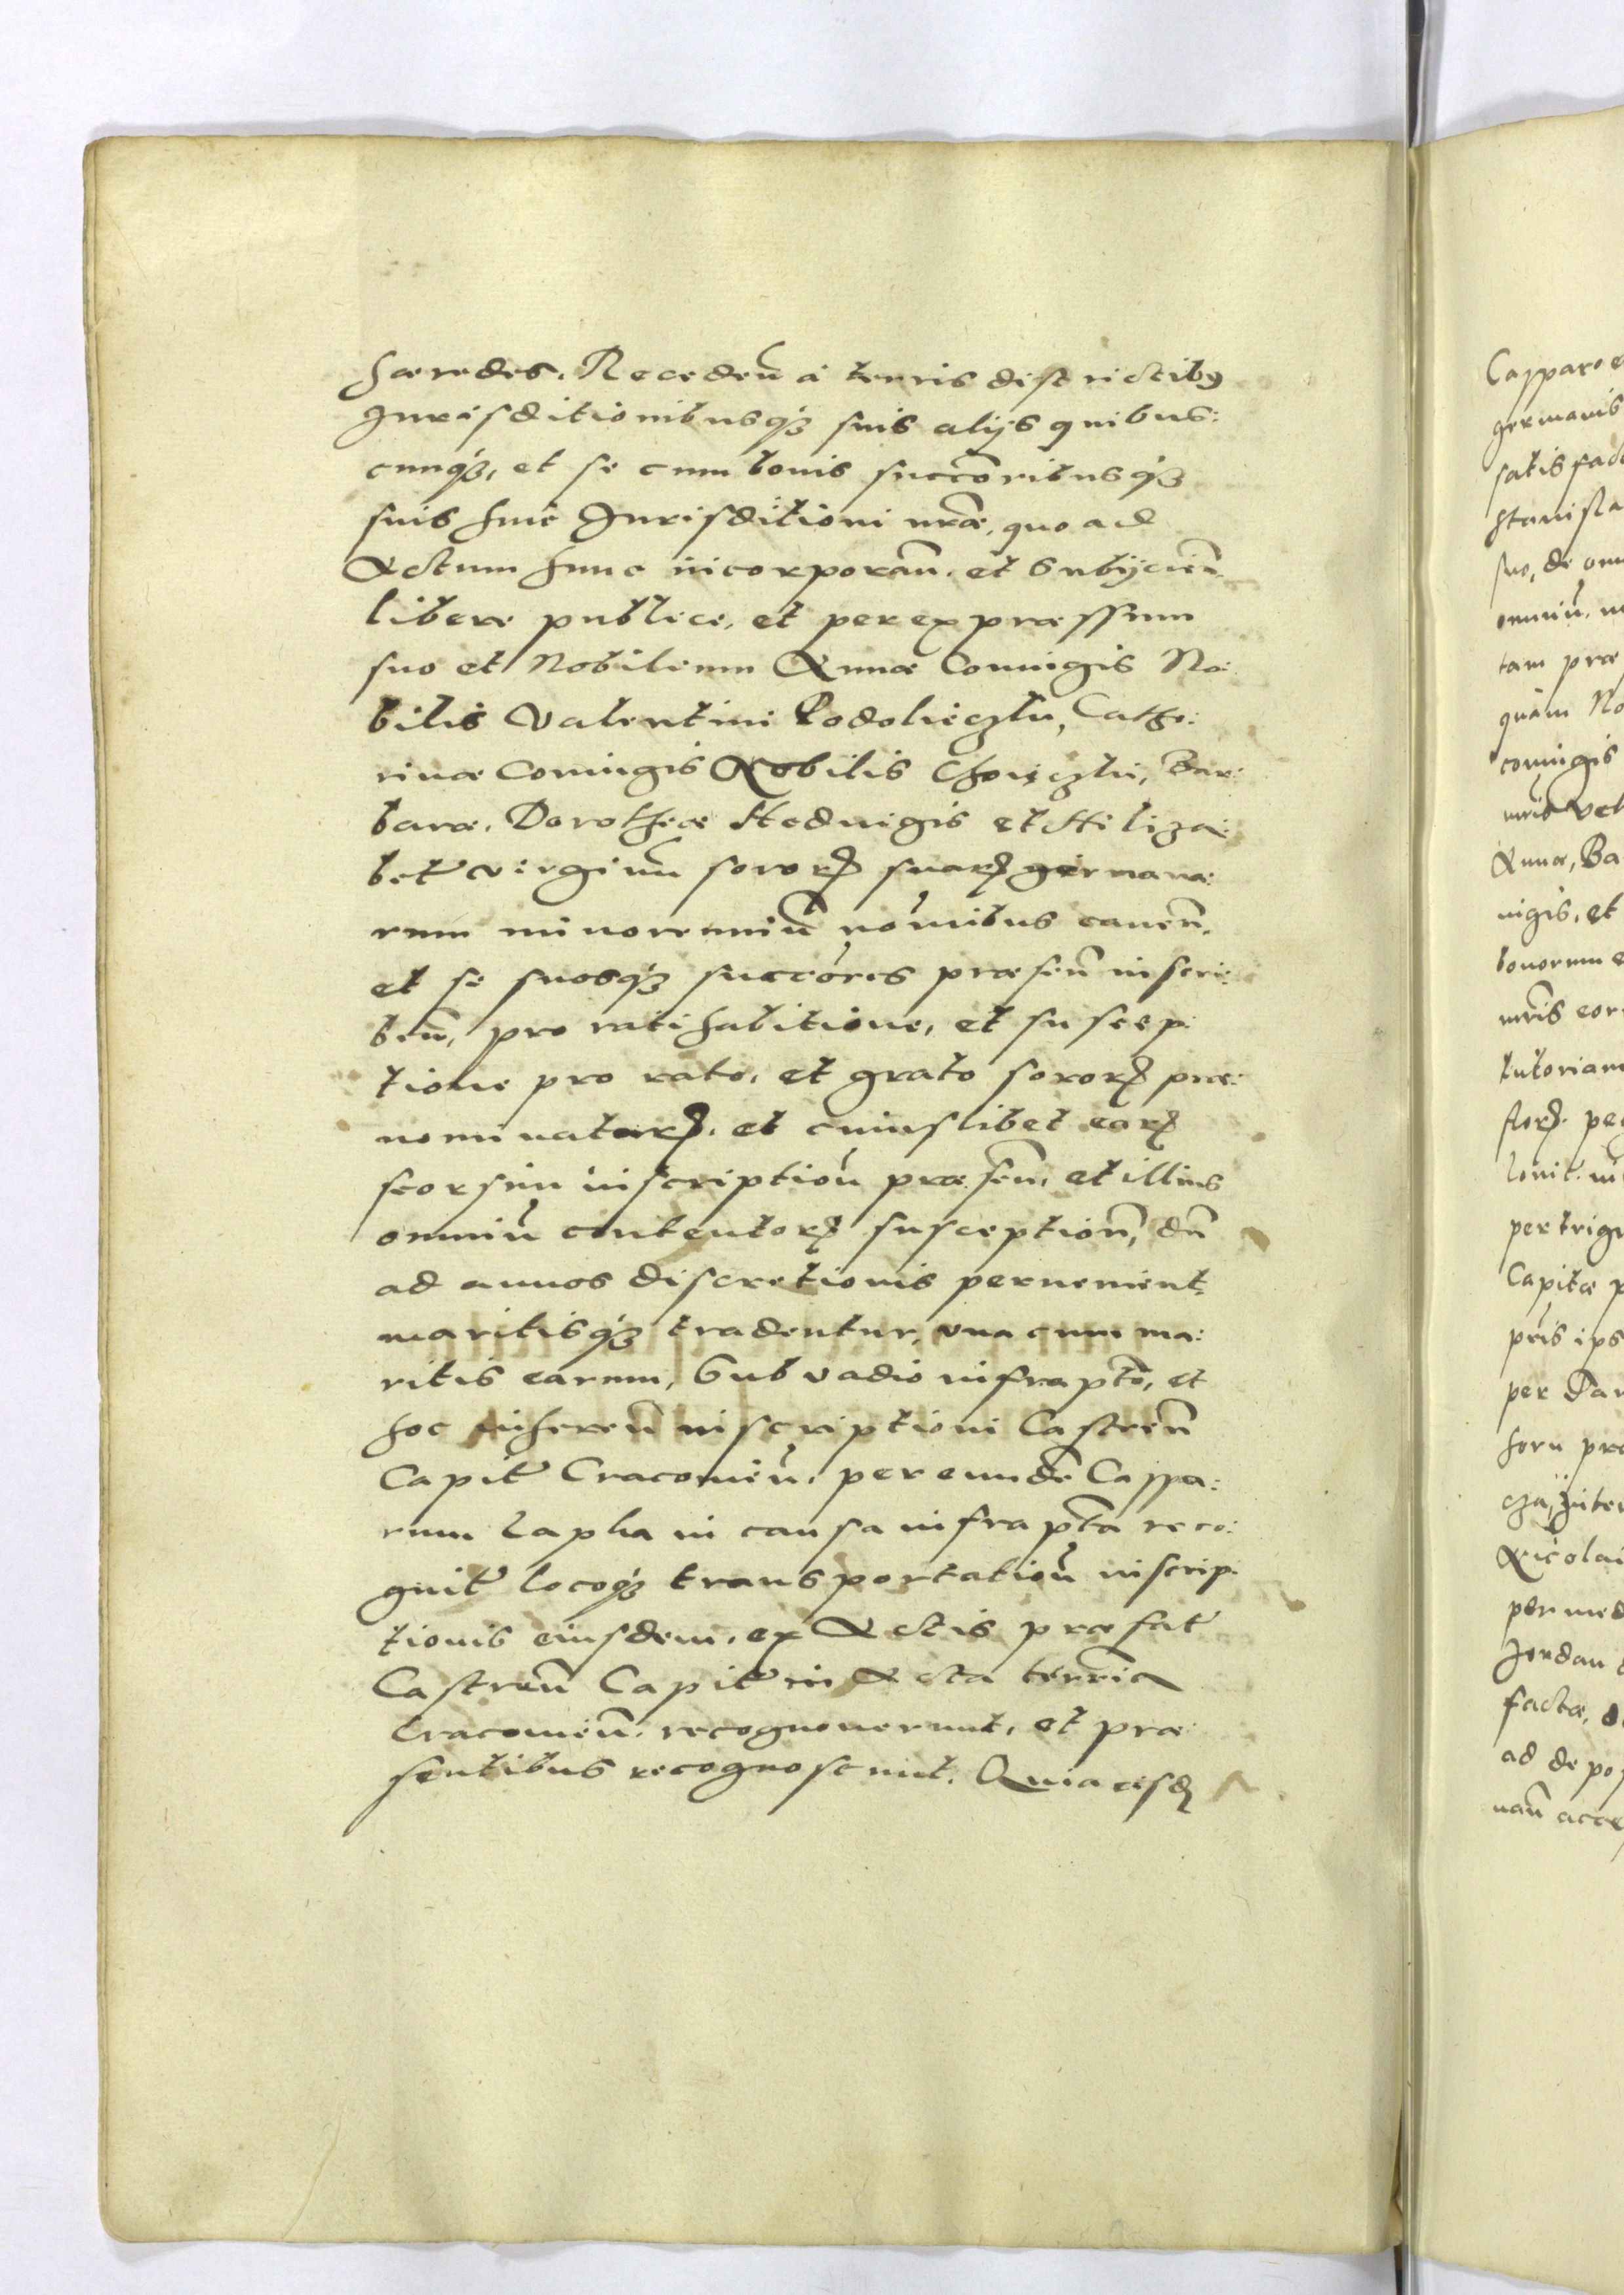 hæredes. Recedeñ á terris districtibꝰ
Jurisditionibusqꝫ suis alijs quibus:
cunqꝫ, et se cum bonis succõribusqꝫ
suis huic Jurisditioni nr̃æ, quo ad
Actum hunc incorporañ. et Subijcieñ
libere publice, et per expræssum
suo et Nobilium Annæ Coniugis No:
bilis Valentini Podolieczky, Cathe:
rinæ Coniugis Nobilis Bar:
baræ, Dorotheæ Heduigis et Heliza:
bet̃ virginũ sororꝝ suarꝝ germana:
rum minorenniũ nõminibus caueñ.
et se suosqꝫ succõres præseñ inscri:
beñ, pro ratihabitione, et suscep:
tione pro rato, et grato sororꝝ præ:
nominatarꝝ. et cuiuslibet earꝝ
seorsim inscriptioñ præseñ, et illius
omniũ contentorꝝ susceptioñ, dũ
ad annos discretionis peruenient
maritisqꝫ tradentur, vna cum ma:
ritis earum, Sub vadio infraptõ, et
hoc inhereñ inscriptioni Castreñ
Capit̃ Cracouieñ. per eundẽ Caspa:
rum Lapka in causa infraptã reco:
gnit̃ locoqꝫ transportatioñ inscrip:
tionis eiusdem, ex Actis præfat̃
Castreñ Capit̃ in Acta terrẽia
Cracouieñ. recognouerunt, et præ:
sentibus recognoscunt. Quia eisdꝫ
Casparo
germanis
satisfac
Stanisla
suo, de om
omniũ
tam præ
quàm No
coniugis
mr̃is vel
Annæ, Ba
uigis, et
bonorum e
mr̃is eor
tutoriam
florꝝ. pec
louit̃
per trigi
Capitæ p
pr̃is ips
per Dan
foru pro
cza, inter
Nicolai
per med
Jordan
factæ,
ad depo
nañ acce